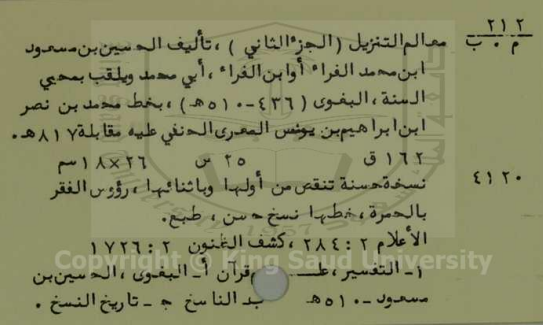 ٢١٢
م . ب
معالم التنزيل (الجزء الثاني) ، تأليف الحسين بن مسعود
ابن محمد الفراء أو ابن الفراء ، أبي محمد ويلقب بمحيي
السنة ، البغوى (٤٣٦-٥١٠هـ) ، بخط محمد بن نصر
ابن ابراهيم بن يونس المعرى الحنفي عليه مقابلة ٨١٧هـ.
١٦٢ ق ٢٥ س ٢٦×١٨سم
٤١٢٠
نسخة حسنة تنقص من أولها وباثنائها ، رؤوس الفقر
بالحمرة ، خطها نسخ حسن ، طبع.
الأعلام ٢ : ٢٨٤ ، كشف الظنون ٢ : ١٧٢٦
Copyright © King Saud University
١- التفسير ، قرآن أ- البغوى ، الحسين بن
مسعود -٥١٠هـ الناسخ جـ - تاريخ النسخ .